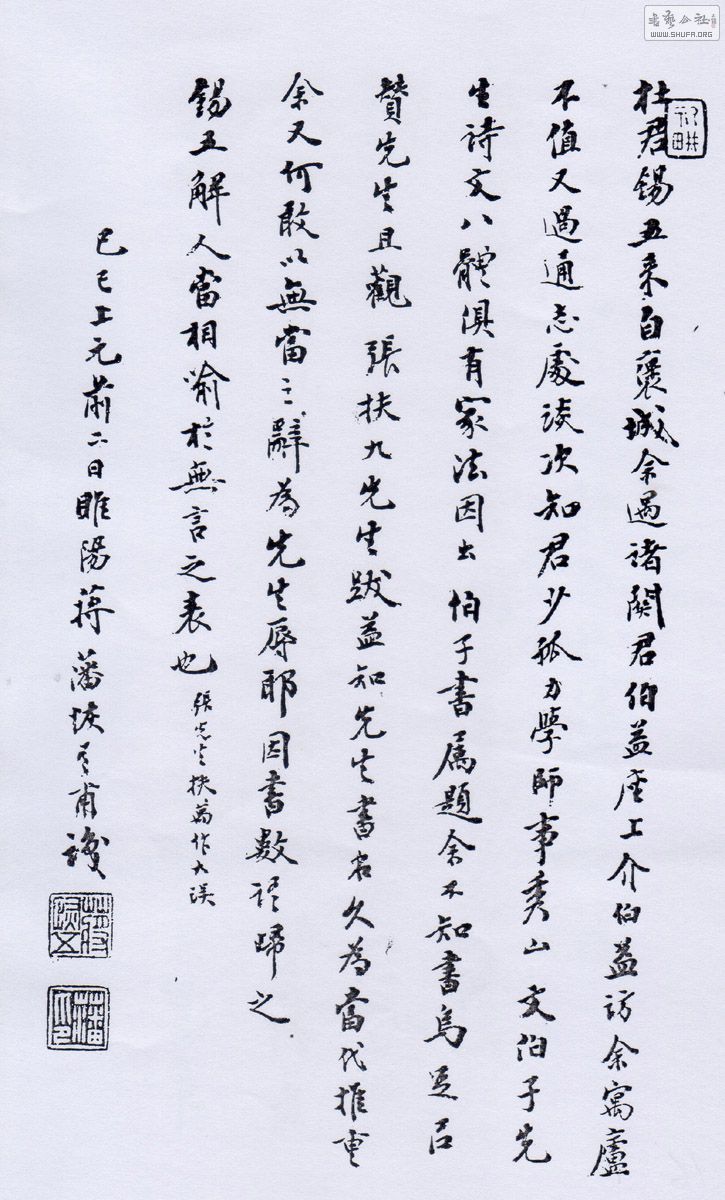 杜君錫五来自褒城余過諸關君伯益座上介伯益訪余寓廬
不值又遇通志處談次知君少孤力學師事秀山文伯子先
生詩文八體俱有家法因出伯子書属題余不知書烏足以
贊先生且觀張扶九先生跋益知先生書名久為當代推重
余又何敢以無當之辭為先生辱耶因書数語歸之
錫五解人當相喻於無言之表也張先生扶萬作九误
己巳上元前二日睢陽蔣藩恢吾甫識
書藝公社
WWW.SHUFA.ORG